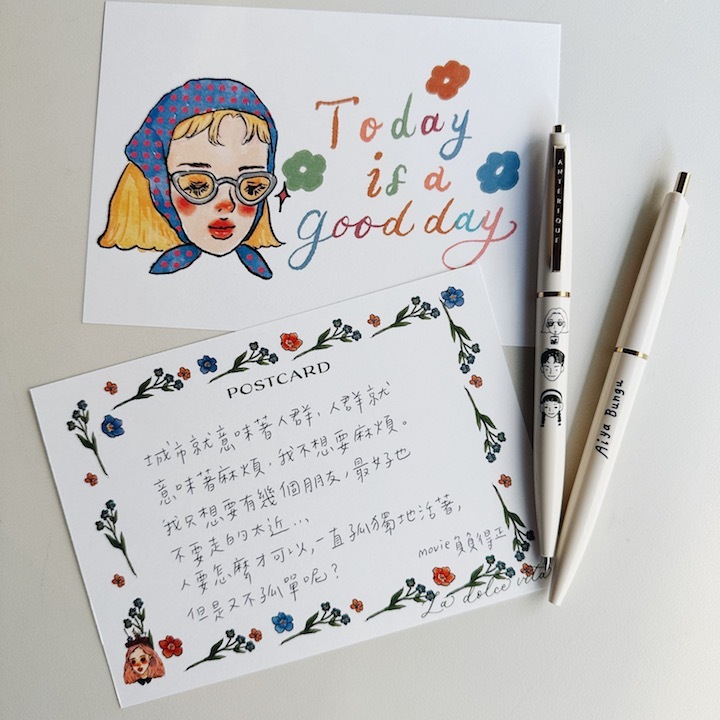 Today
is a
good day
POSTCARD
城市就意味著人群，人群就
意味著麻煩，我不想要麻煩。
我只想要有幾個朋友，最好也
不要走的太近...
人要怎麼才可以，一直孤獨地活著，
但是又不孤單呢？
movie 負負得正
La dolce vita
ANTERIQUE
Aiya Bungu